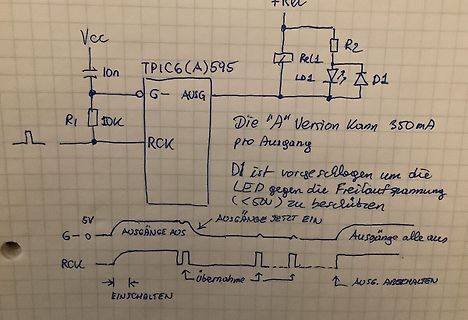 +Rel
Vcc
10n
TPIC6(A)595
G-
AUSG
Rel1
R2
LD1
D1
R1
10K
RCK
Die "A" Version kann 350mA
pro Ausgang
D1 ist vorgeschlagen um die
LED gegen die Freilaufspannung
(<50V) zu beschützen
5V
G- 0
AUSGÄNGE AUS
AUSGÄNGE JETZT EIN
Ausgänge alle aus
RCK
EINSCHALTEN
Übernahme
AUSG.